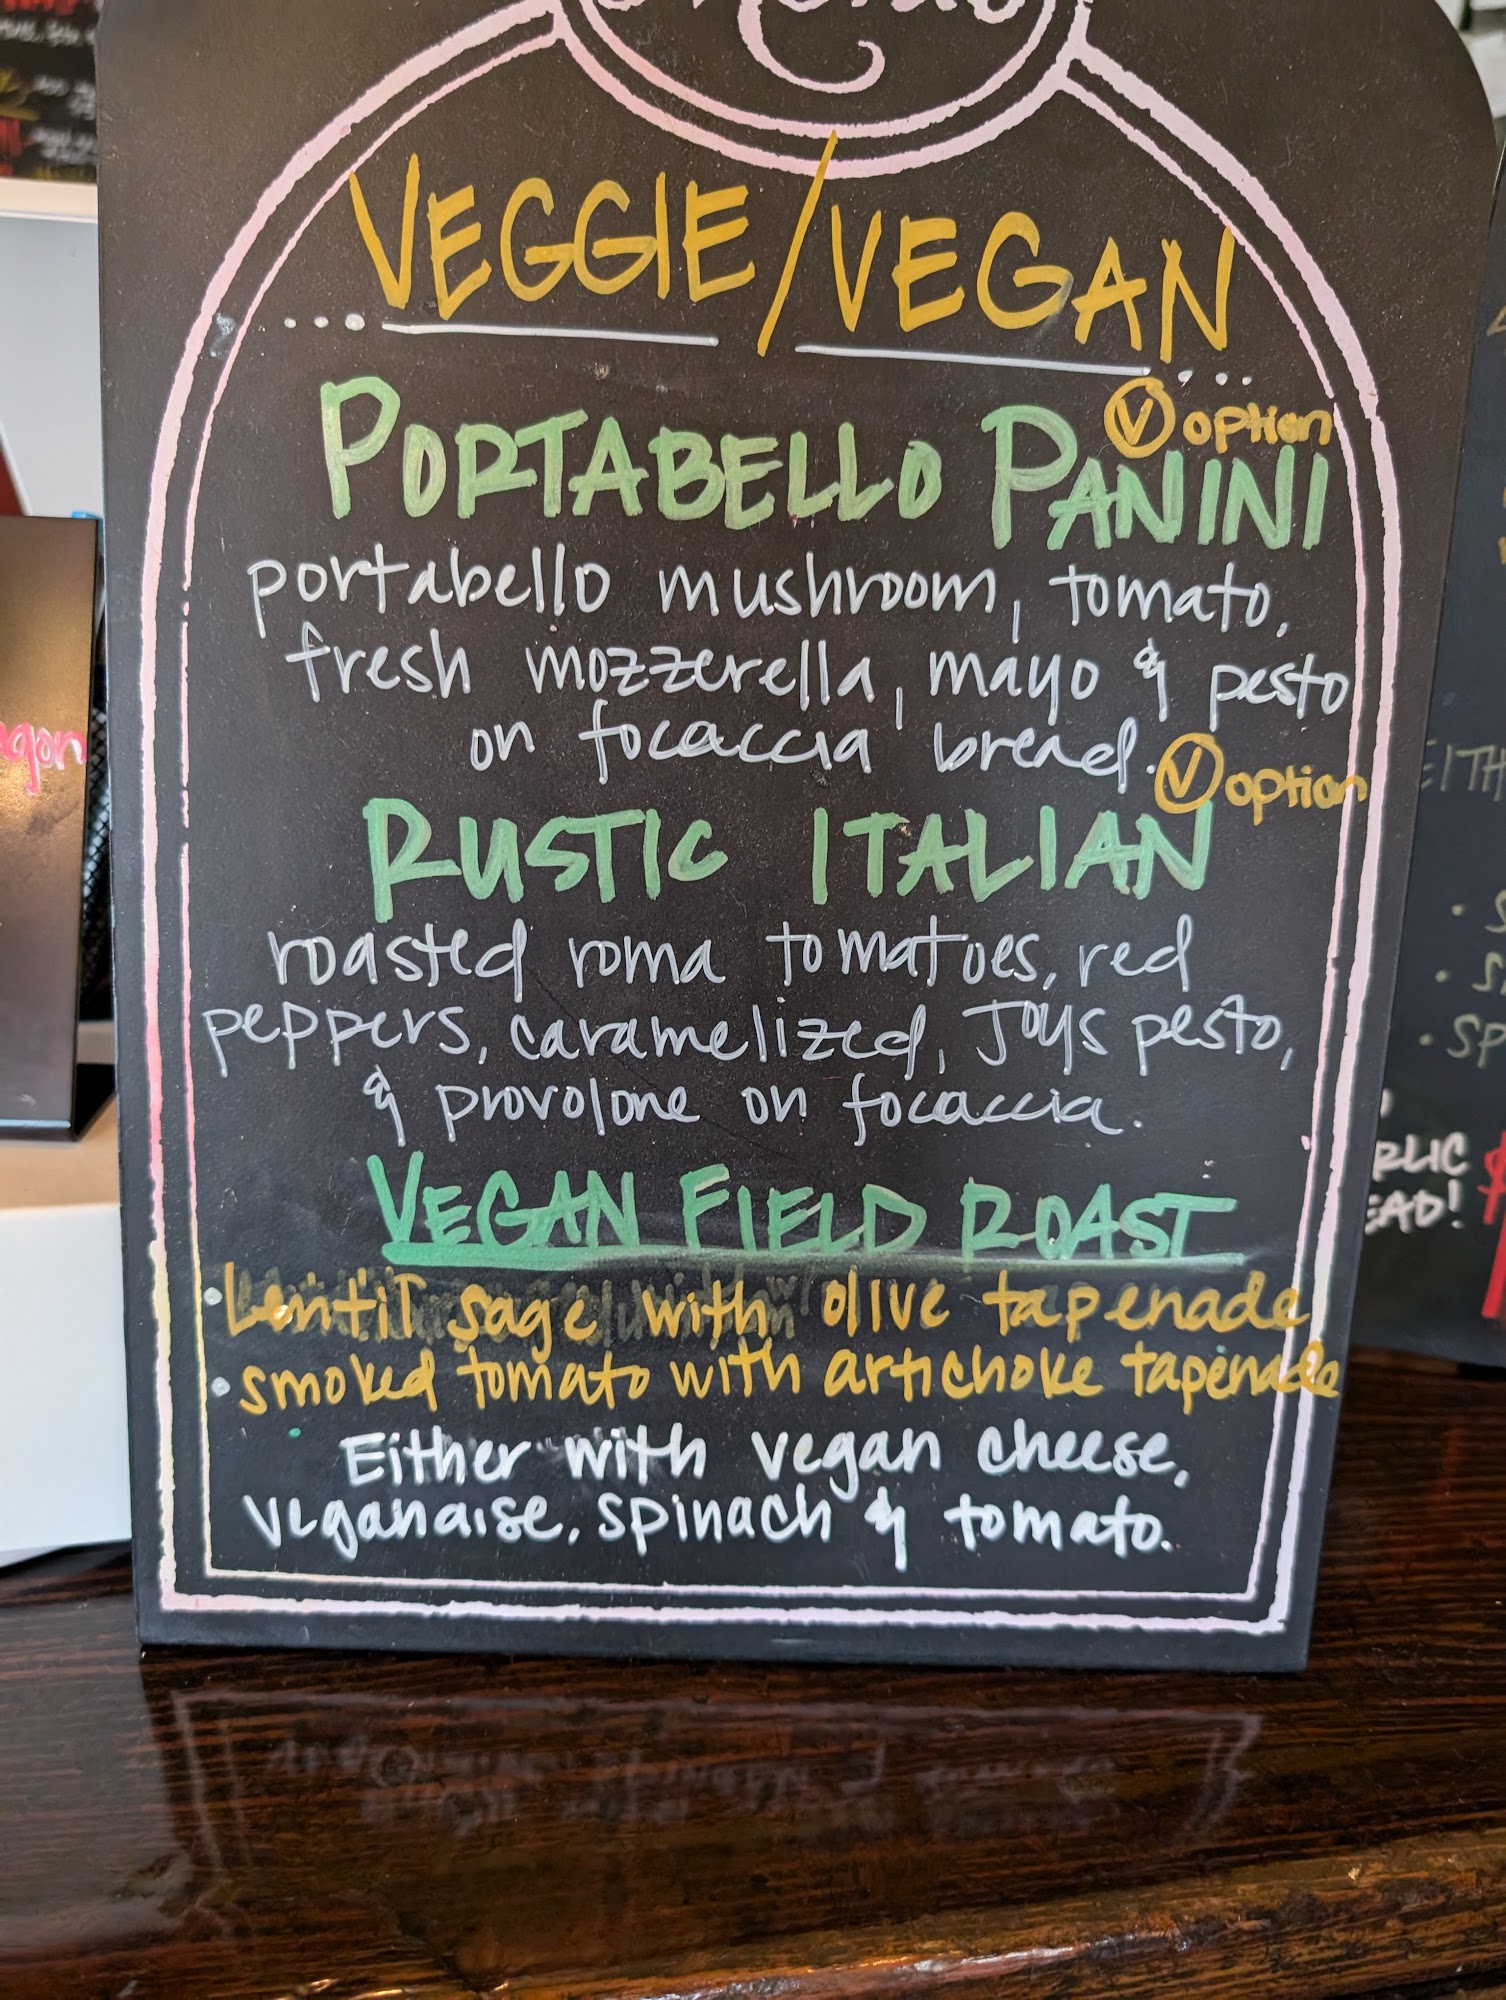 VEGGIE/VEGAN
V option
PORTABELLO PANINI
portabello mushroom, tomato,
fresh mozzerella, mayo & pesto
on focaccia bread.
V option
RUSTIC ITALIAN
roasted roma tomatoes, red
peppers, caramelized, Joys pesto,
& provolone on focaccia.
VEGAN FIELD ROAST
• Lentil sage with olive tapenade
• smoked tomato with artichoke tapenade
Either with vegan cheese,
veganaise, spinach & tomato.